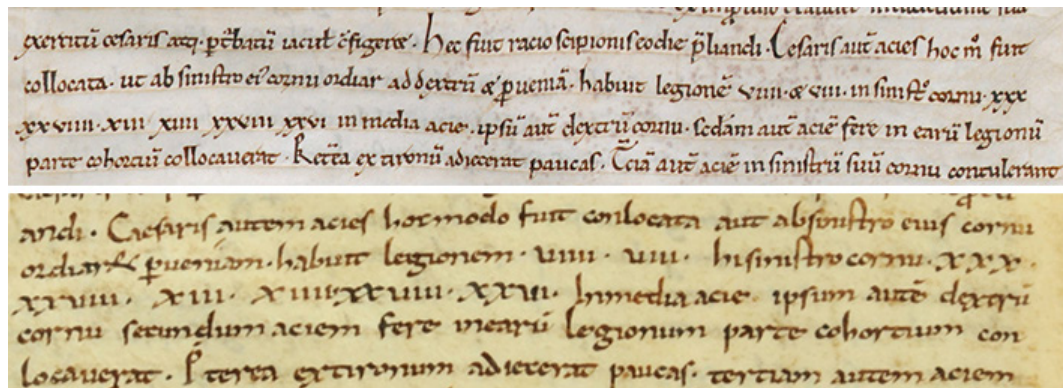 exercitū cesaris atq; ꝑt̄batū iacul̄ c̄figere. Hec fuit racio scipionis eodie p̄liandi. Cesaris aut̄ acies hoc mͦ fuit
collocata. ut ab sinistro eiꝰ cornu ordiar ad dextrū & ꝑueniā. habuit legionē viiii. & viii. in sinistͦ cornu. xxx
xxviiii. xiii xiiii xxviii xxvi in media acie. ipsū aut̄ dextrū cornu. sēdam aut̄ aciē fere in earū legionū
parte cohortiū collocaverat. Ret̄ea ex tironū adiecerat paucas. T̄ciā aut̄ aciē in sinistrū suū cornu contulerant
andi. Caesaris autem acies hocmodo fuit conlocata aut absinistro eius cornu
ordiar ꝑveniam. habuit legionem. viiii. viii. Insinistro cornu. xxx.
xxviiii. xiii. xiiii. xxviiii. xxvi. Inmedia acie. ipsum autē dextrū
cornu secundum aciem fere inearū legionum parte cohortium con
locaverat. P̄terea extironum adiecerat paucas. tertiam autem aciem